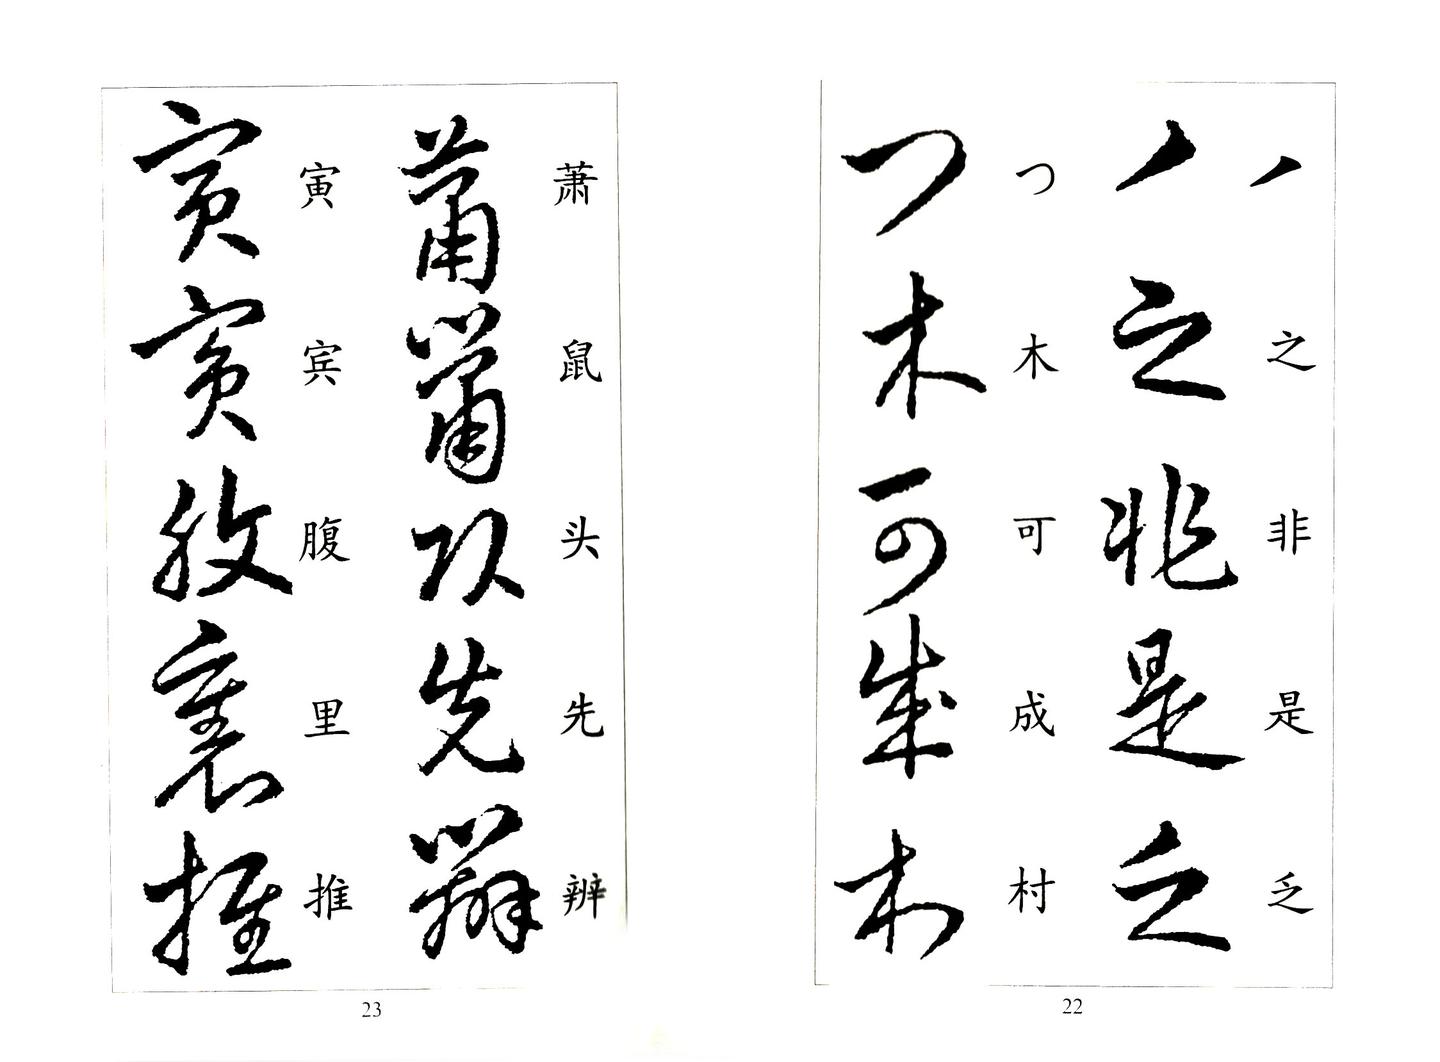 ノ之非是乏
ノ之非是乏
つ木可成村
つ木可成村
22
萧鼠头先辨
蕭鼠頭先辨
寅宾腹里推
寅賓腹裏推
23